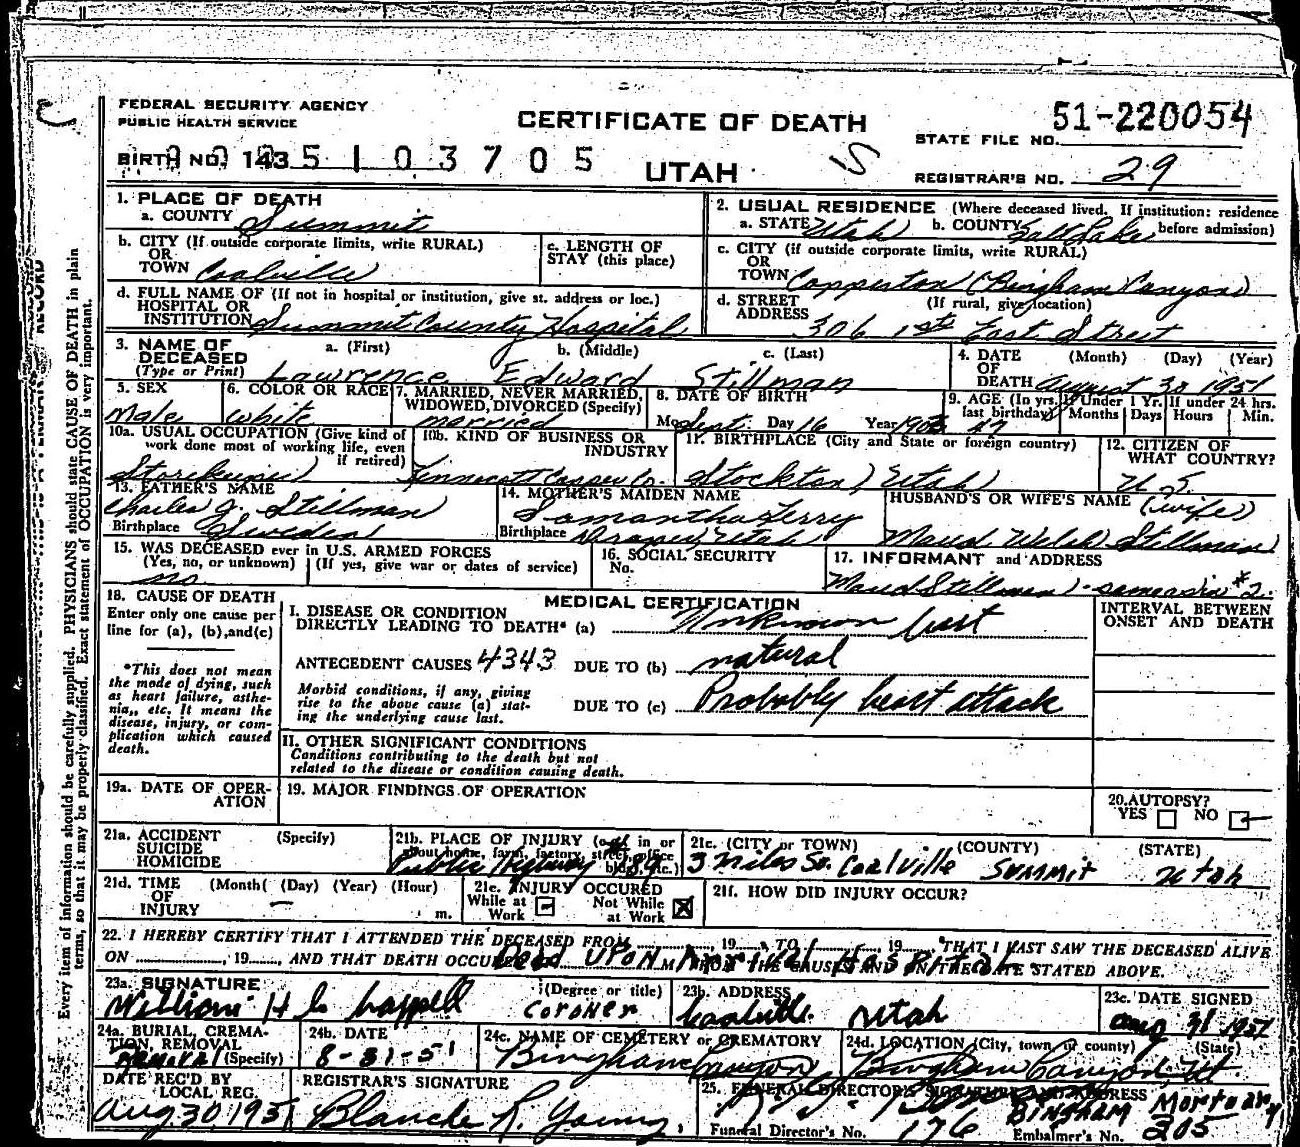 FEDERAL SECURITY AGENCY
PUBLIC HEALTH SERVICE
CERTIFICATE OF DEATH
STATE FILE NO. 51-220054
BIRTH NO. 143 5 1 0 3 7 0 5
UTAH
REGISTRAR'S NO. 29
1. PLACE OF DEATH
a. COUNTY Summit
2. USUAL RESIDENCE (Where deceased lived. If institution: residence before admission)
a. STATE Utah b. COUNTY Salt Lake
b. CITY (If outside corporate limits, write RURAL)
OR
TOWN Coalville
c. LENGTH OF STAY (this place)
c. CITY (if outside corporate limits, write RURAL)
OR
TOWN Copperton (Bingham Canyon)
d. FULL NAME OF (If not in hospital or institution, give st. address or loc.)
HOSPITAL OR
INSTITUTION Summit County Hospital
d. STREET ADDRESS (If rural, give location)
306 1st East Street
3. NAME OF DECEASED (Type or Print)
a. (First) b. (Middle) c. (Last)
Lawrence Edward Stillman
4. DATE OF DEATH (Month) (Day) (Year)
August 30 1951
5. SEX
Male
6. COLOR OR RACE
white
7. MARRIED, NEVER MARRIED, WIDOWED, DIVORCED (Specify)
married
8. DATE OF BIRTH
Mo. Sept. Day 16 Year
9. AGE (In yrs. last birthday) 47
If Under 1 Yr. Months Days
If under 24 hrs. Hours Min.
10a. USUAL OCCUPATION (Give kind of work done most of working life, even if retired)
10b. KIND OF BUSINESS OR INDUSTRY
Kennecott Copper Co.
11. BIRTHPLACE (City and State or foreign country)
Stockton, Utah
12. CITIZEN OF WHAT COUNTRY?
U.S.
13. FATHER'S NAME
Charles J. Stillman
Birthplace Sweden
14. MOTHER'S MAIDEN NAME
Samantha Terry
Birthplace Draper, Utah
HUSBAND'S OR WIFE'S NAME (wife)
Maud Welch Stillman
15. WAS DECEASED ever in U.S. ARMED FORCES
(Yes, no, or unknown) (If yes, give war or dates of service)
no
16. SOCIAL SECURITY No.
17. INFORMANT and ADDRESS
Maud Stillman - same as in #2.
18. CAUSE OF DEATH
Enter only one cause per line for (a), (b), and (c)
*This does not mean the mode of dying, such as heart failure, asthenia,, etc. It means the disease, injury, or complication which caused death.
MEDICAL CERTIFICATION
INTERVAL BETWEEN ONSET AND DEATH
I. DISEASE OR CONDITION
DIRECTLY LEADING TO DEATH* (a) Unknown but
ANTECEDENT CAUSES 4343 DUE TO (b) natural
Morbid conditions, if any, giving rise to the above cause (a) stating the underlying cause last.
DUE TO (c) Probably heart attack
II. OTHER SIGNIFICANT CONDITIONS
Conditions contributing to the death but not
related to the disease or condition causing death.
19a. DATE OF OPERATION
19. MAJOR FINDINGS OF OPERATION
20. AUTOPSY?
YES NO
21a. ACCIDENT (Specify)
SUICIDE
HOMICIDE
21b. PLACE OF INJURY (e.g., in or about home, farm, factory, street, office bldg., etc.)
Public Highway 189
21c. (CITY or TOWN) (COUNTY) (STATE)
3 miles So. Coalville Summit Utah
21d. TIME OF INJURY (Month) (Day) (Year) (Hour)
m.
21e. INJURY OCCURED
While at Work Not While at Work
21f. HOW DID INJURY OCCUR?
22. I HEREBY CERTIFY THAT I ATTENDED THE DECEASED FROM 19 , TO , 19 , THAT I LAST SAW THE DECEASED ALIVE
ON , 19 , AND THAT DEATH OCCURED M., FROM THE CAUSES AND ON THE DATE STATED ABOVE.
Dead upon Arrival Hospital
23a. SIGNATURE (Degree or title)
William H Coroner
23b. ADDRESS
Coalville. Utah
23c. DATE SIGNED
Aug 31 1951
24a. BURIAL, CREMATION, REMOVAL (Specify)
Removal
24b. DATE
8-31-51
24c. NAME OF CEMETERY or CREMATORY
Bingham Canyon
24d. LOCATION (City, town, or county) (State)
Bingham Canyon, Ut
DATE REC'D BY LOCAL REG.
Aug. 30 1951
REGISTRAR'S SIGNATURE
Blanche R. Young
25. FUNERAL DIRECTOR'S SIGNATURE AND ADDRESS
BINGHAM Mortuary
Funeral Director's No. 176 Embalmer's No. 305
Every item of information should be carefully supplied. PHYSICIANS should state CAUSE OF DEATH in plain
terms, so that it may be properly classified. Exact statement of OCCUPATION is very important.